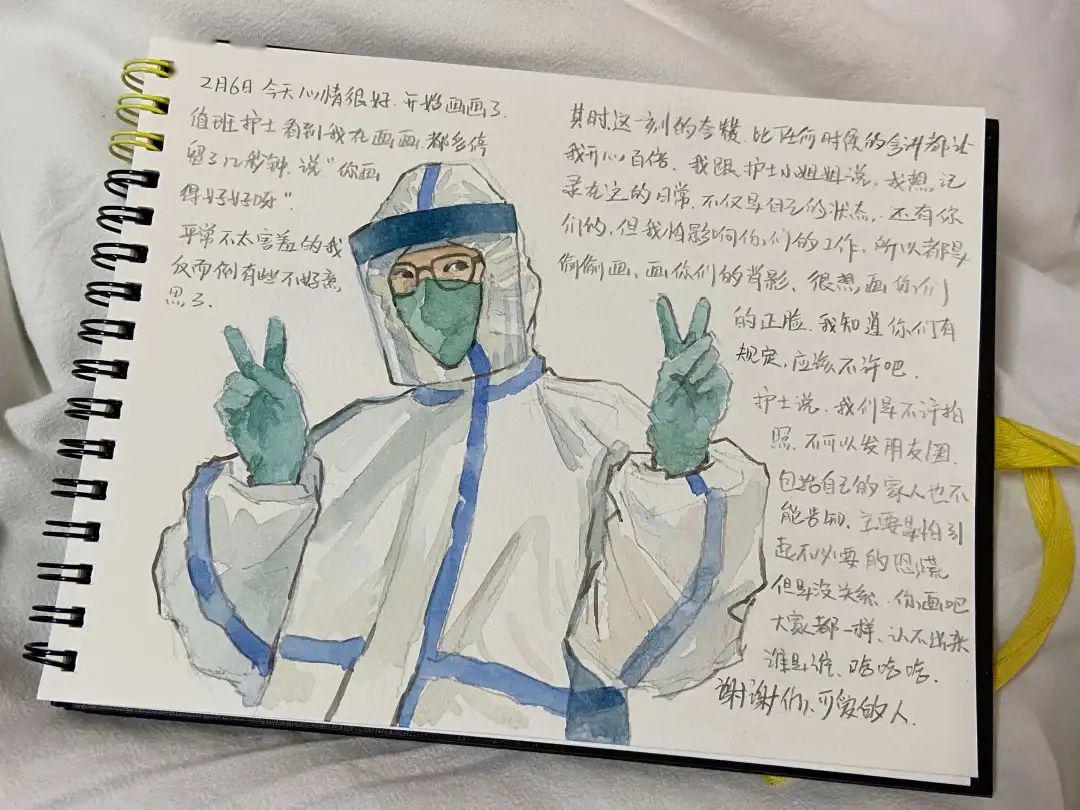 2月6日 今天心情很好.开始画画了.
值班护士看到我在画画,都多停
留了几秒钟.说"你画
得好好呀".
平常不太害羞的我
反而倒有些不好意
思了.
其时这一刻的夸奖.比任何时候的夸讲都让
我开心百倍.我跟护士小姐姐说,我想记
录在这的日常.不仅是自己的状态,还有你
们的,但我怕影响你们的工作,所以都是
偷偷画,画你们的背影,很想画你们
的正脸.我知道你们有
规定,应该不许吧.
护士说,我们是不许拍
照.不可以发朋友圈.
包括自己的家人也不
能告知,主要是怕引
起不必要的恐慌
但是没关系.你画吧
大家都一样,认不出来
谁是谁,哈哈哈.
谢谢你们,可爱的人.